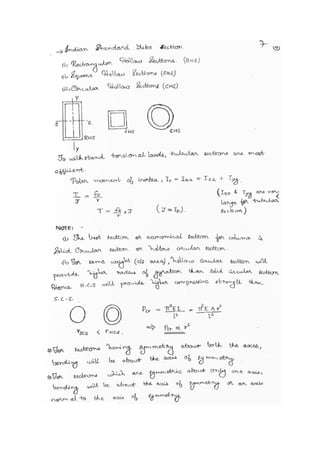 → Indian Standard Tube Section
7
(i) Rectangular Hollow Sections. (RHS)
(ii) Square Hollow Sections (SHS)
(iii) Circular Hollow Sections (CHS)
Y
Z
Z
RHS
SHS
CHS
Y
To withstand torsional loads, tubular sections are most
efficient.
Polar moment of inertia, Ip = Izz + Iyy
T/J = fs/r
(Izz & Iyy are very
large for tubular
section)
T = fs/r × J (J = Ip).
NOTE: -
(i) The best section or economical section for column is
Solid Circular section or hollow circular section.
(ii) For same weight (c/s area), hollow circular section will
provide higher radius of gyration than solid circular section
Hence H.C.S will provide higher compressive strength than
S.C.S.
Pcr = π²EI/l² = π²EAr²/l²
rSCS < rHCS.
⇒ Pcr ∝ r²
For sections having symmetry about both the axes,
bending will be about the axis of symmetry.
For sections which are symmetric about only one axis,
bending will be about the axis of symmetry or an axis
normal to the axis of symmetry.